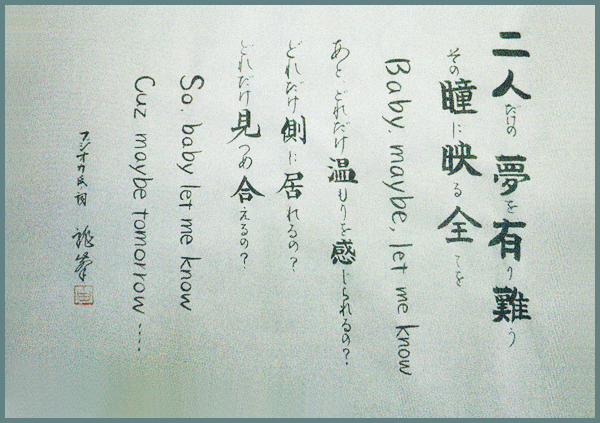 二人だけの夢を有り難う
その瞳に映る全てを
Baby, maybe, let me know
あと、どれだけ温もりを感じられるの?
どれだけ側に居れるの?
どれだけ見つめ合えるの?
So, baby let me know
Cuz maybe tomorrow……
フジオカ氏詞